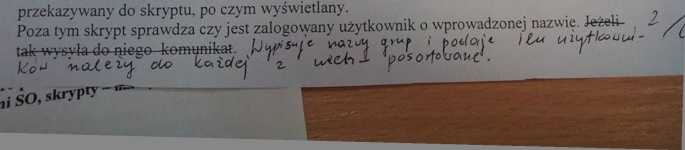 przekazywany do skryptu, po czym wyświetlany.
Poza tym skrypt sprawdza czy jest zalogowany użytkownik o wprowadzonej nazwie. Jeżeli
tak wysyła do niego komunikat. Wypisuje nazwy grup i podaje ilu użytkowni- 2/
ków należy do każdej z nich posortowane.
ni SO, skrypty –